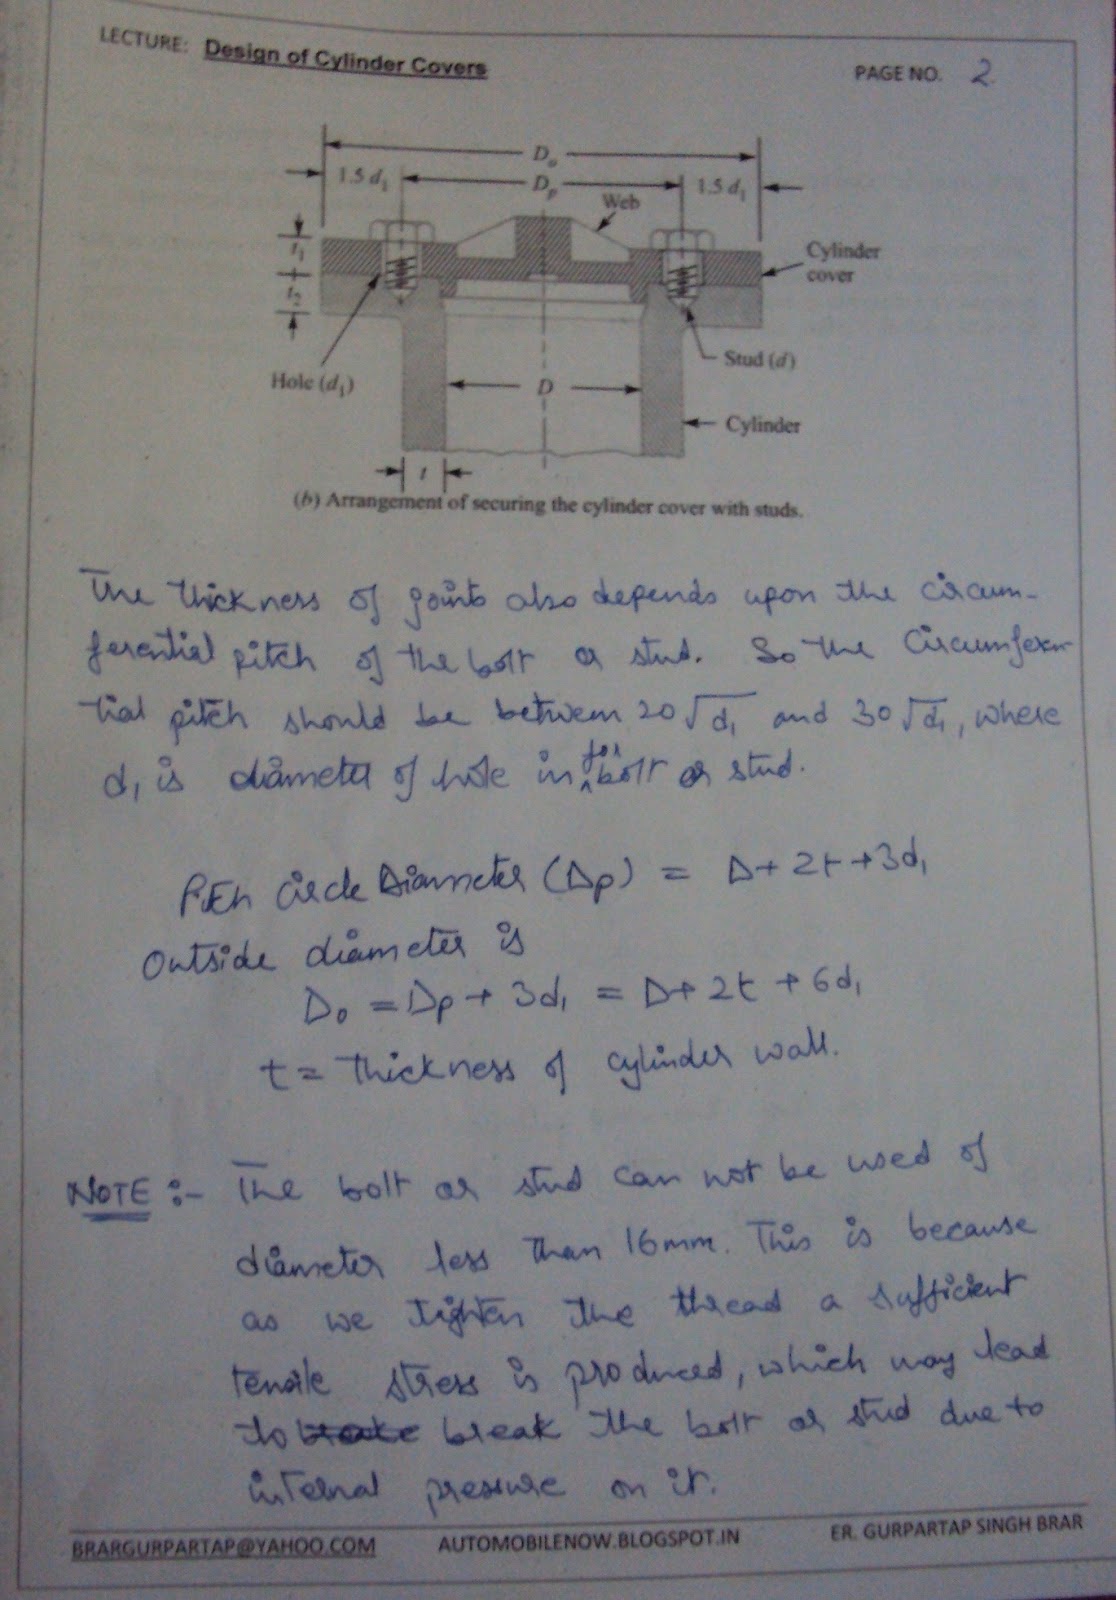 LECTURE: Design of Cylinder Covers
PAGE NO. 2
Do
1.5 d1 Dp 1.5 d1
Web
t1
Cylinder
cover
t2
Stud (d)
Hole (d1)
D
Cylinder
t
(b) Arrangement of securing the cylinder cover with studs.
The thickness of joints also depends upon the circum-
ferential pitch of the bolt or stud. So the Circumferen
tial pitch should be between 20√d1 and 30√d1, where
d1 is diameter of hole in for bolt or stud.
Pitch Circle Diameter (Dp) = D + 2t + 3d1
Outside diameter is
Do = Dp + 3d1 = D + 2t + 6d1
t = Thickness of cylinder wall.
NOTE :- The bolt or stud can not be used of
diameter less than 16mm. This is because
as we tighten the thread a sufficient
tensile stress is produced, which may lead
to break the bolt or stud due to
internal pressure on it.
BRARGURPARTAP@YAHOO.COM AUTOMOBILENOW.BLOGSPOT.IN ER. GURPARTAP SINGH BRAR